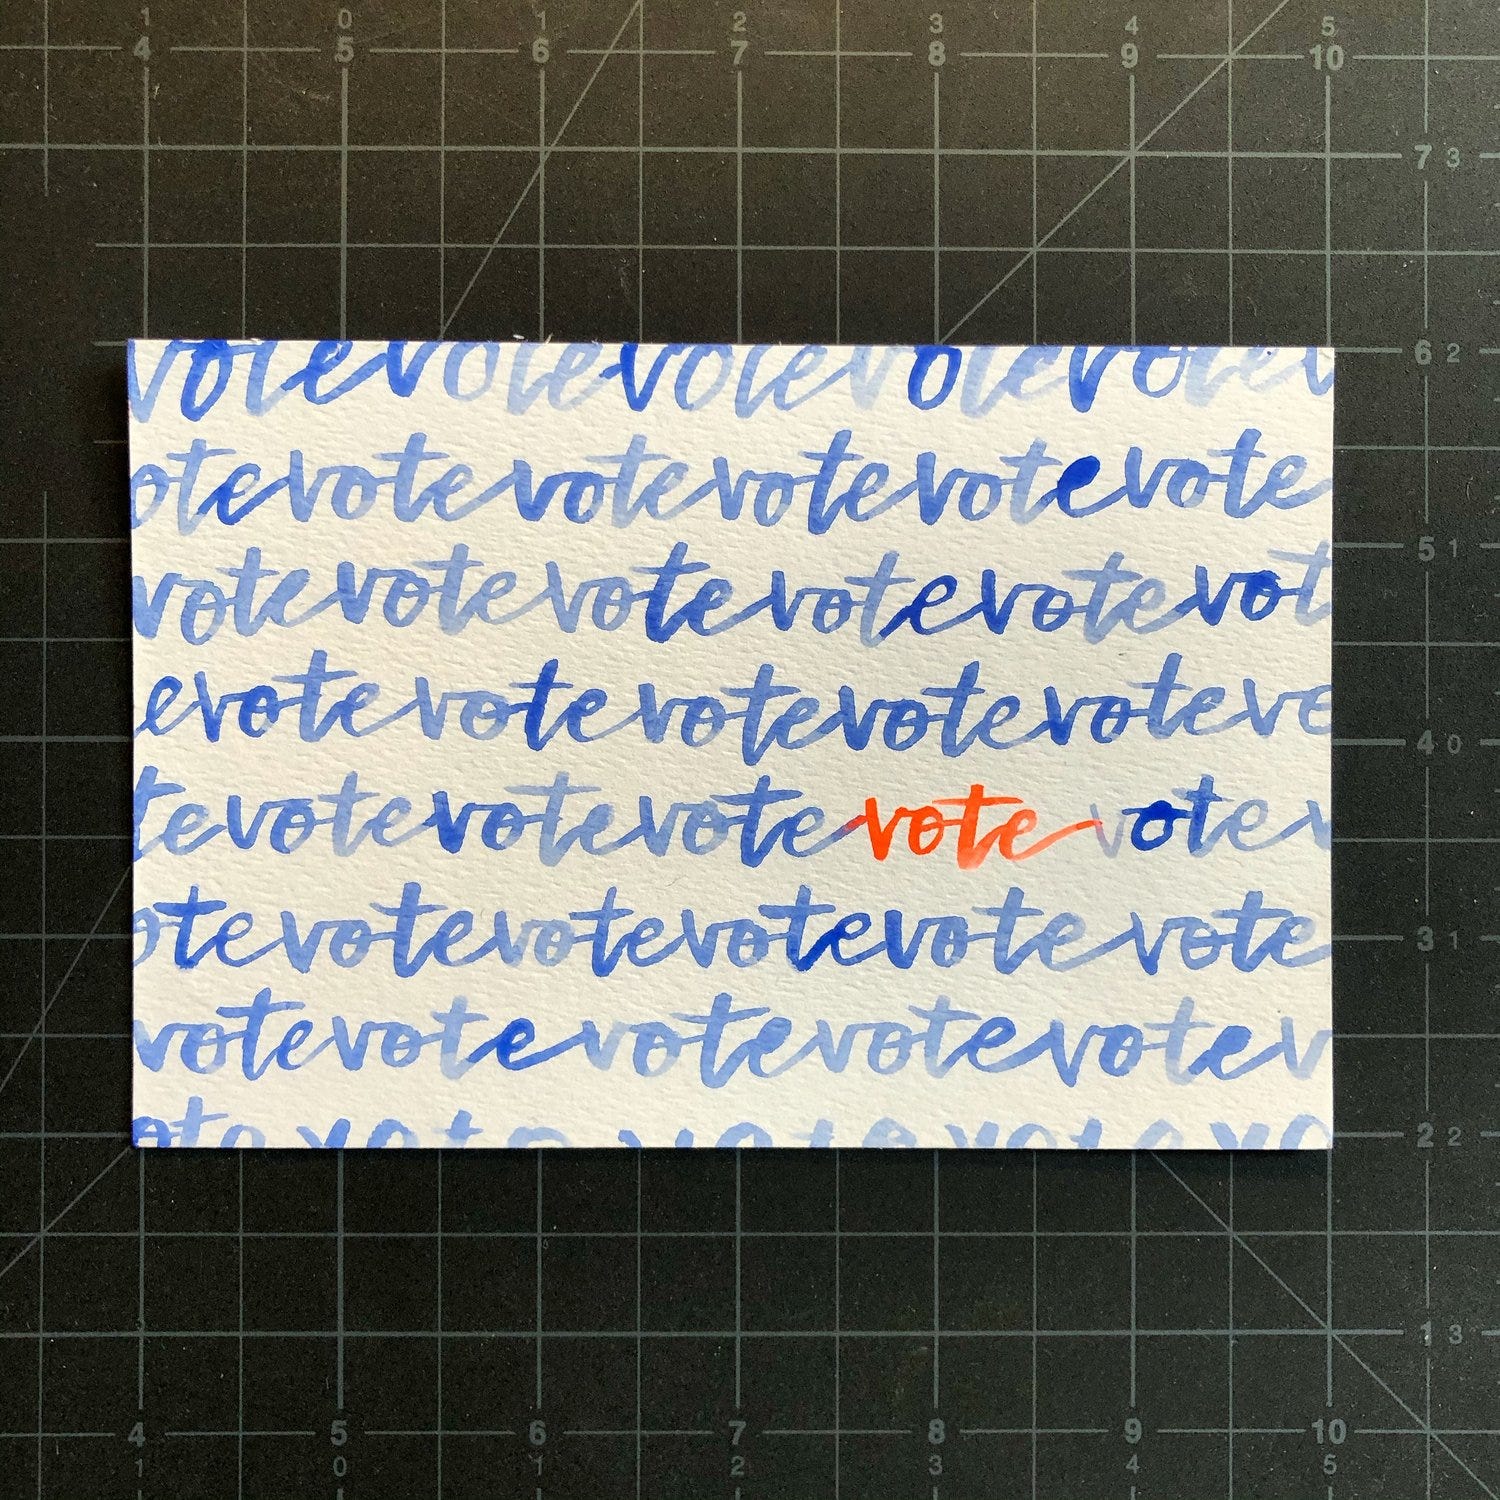 1 0 1 2 3 4 5
4 5 6 7 8 9 10
7 3
votevotevotevotevotev
6 2
otevotevotevotevotevote
5 1
votevotevotevotevotevot
evotevotevotevotevotevo
4 0
tevotevotevotevote votev
otevotevotevotevotevote
3 1
votevotevotevotevotev
ote vote vote vote vo
2 2
1 3
4 5 6 7 8 9 10
0 1 2 3 4 5